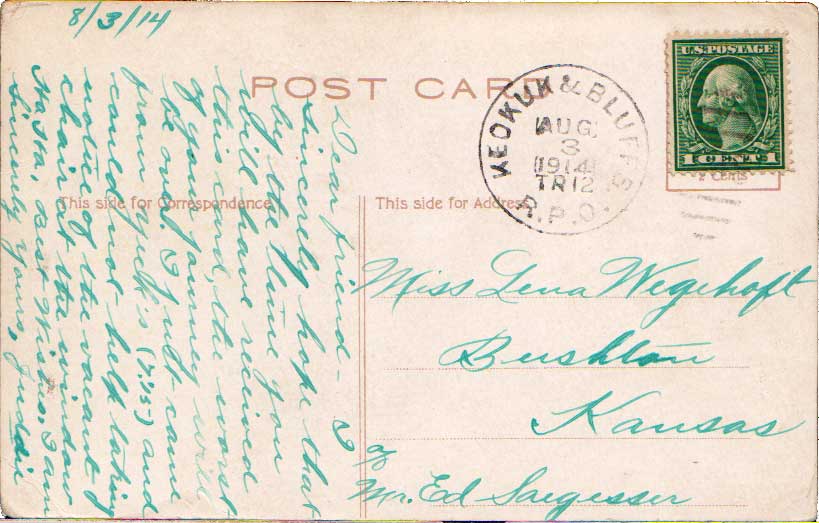 8/3/14
POST CARD
Dear friend - I
sincerely hope that
by the time you
will have received
this card, the worst
of your journey will
be over. I just came
from (7:15) and
could not help taking
notice of the vacant
chair at the window
Ha Ha, Best Wishes, I am
Sincerely yours,
This side for Correspondence
This side for Address
KEOKUK & BLUFFS
AUG
3
1914
TR12
R.P.O.
U.S. POSTAGE
1 CENT 1
2 Cents
Miss Lena Wegehoft
Bushton
Kansas
c/o
Mr. Ed Saegesser